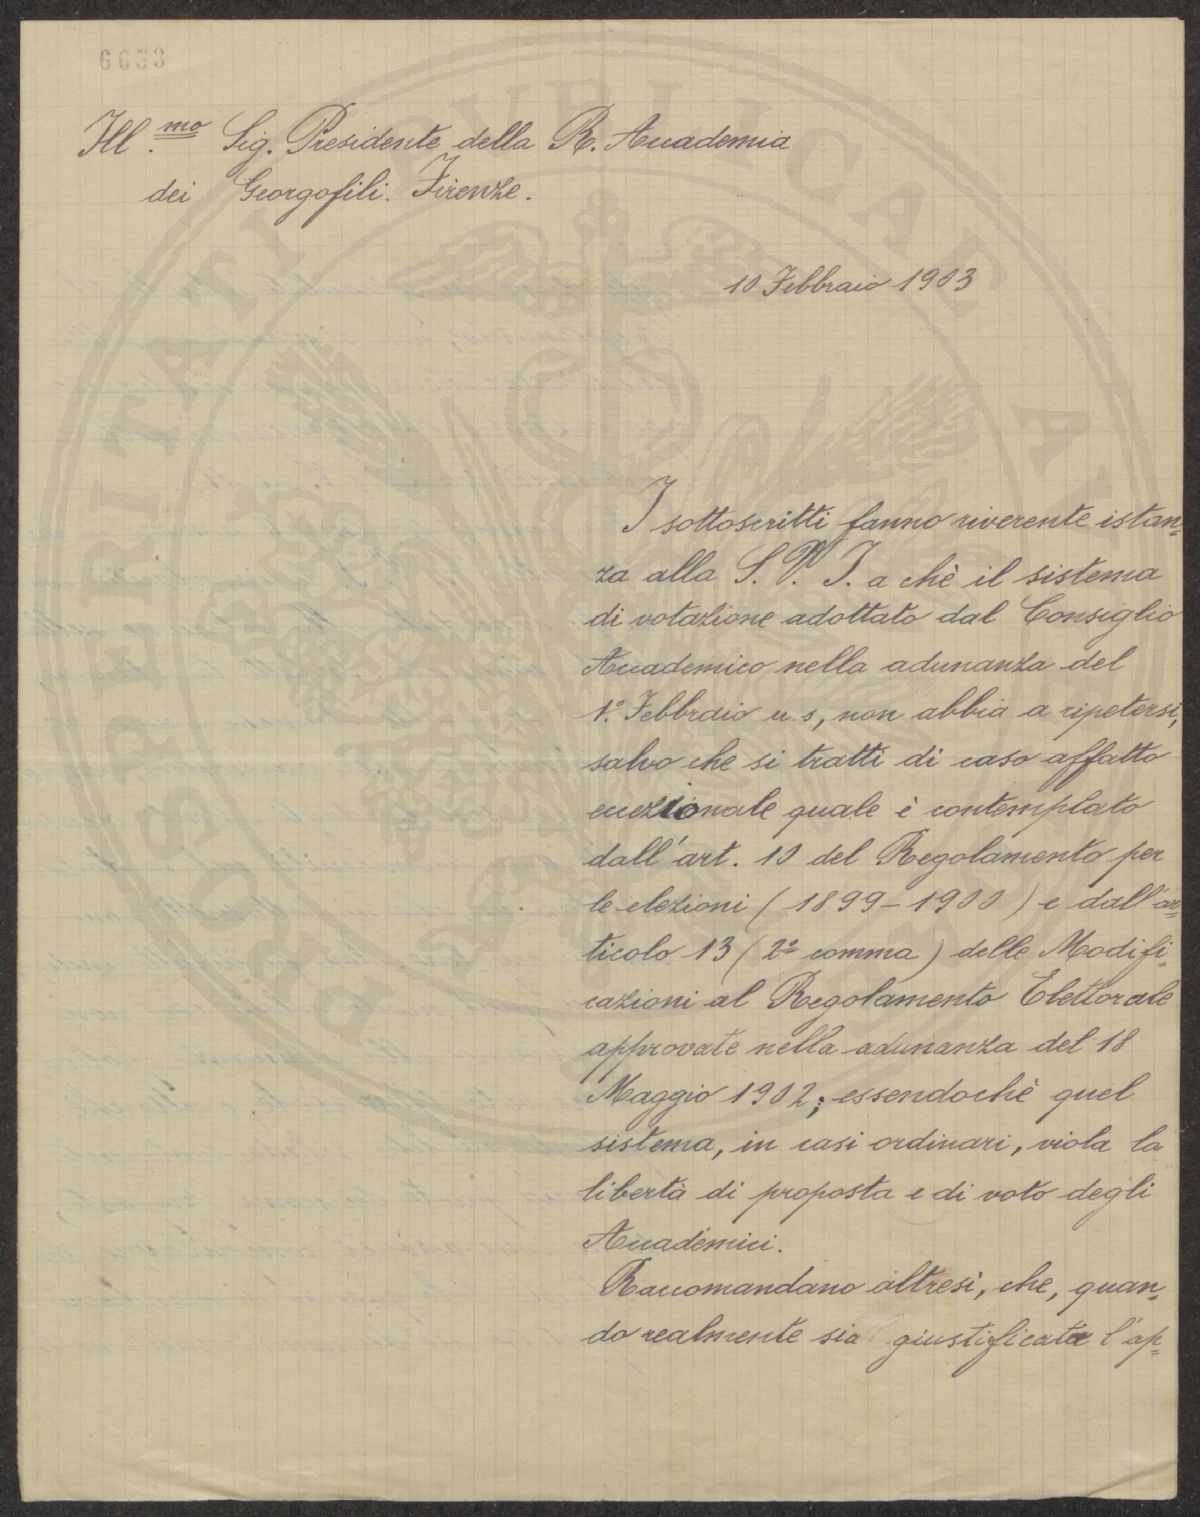 6653
Ill.mo Sig. Presidente della R. Accademia
dei Georgofili. Firenze.
10 Febbraio 1903
I sottoscritti fanno riverente istan=
za alla S. V. I. a chè il sistema
di votazione adottato dal Consiglio
Accademico nella adunanza del
1.º Febbraio u. s, non abbia a ripetersi,
salvo che si tratti di caso affatto
eccezionale quale è contemplato
dall'art. 10 del Regolamento per
le elezioni (1899-1900) e dall'ar=
ticolo 13 (2º comma) delle Modifi=
cazioni al Regolamento Elettorale
approvate nella adunanza del 18
Maggio 1902; essendochè quel
sistema, in casi ordinari, viola la
libertà di proposta e di voto degli
Accademici.
Raccomandano altresì, che, quan=
do realmente sia giustificata l'ap=